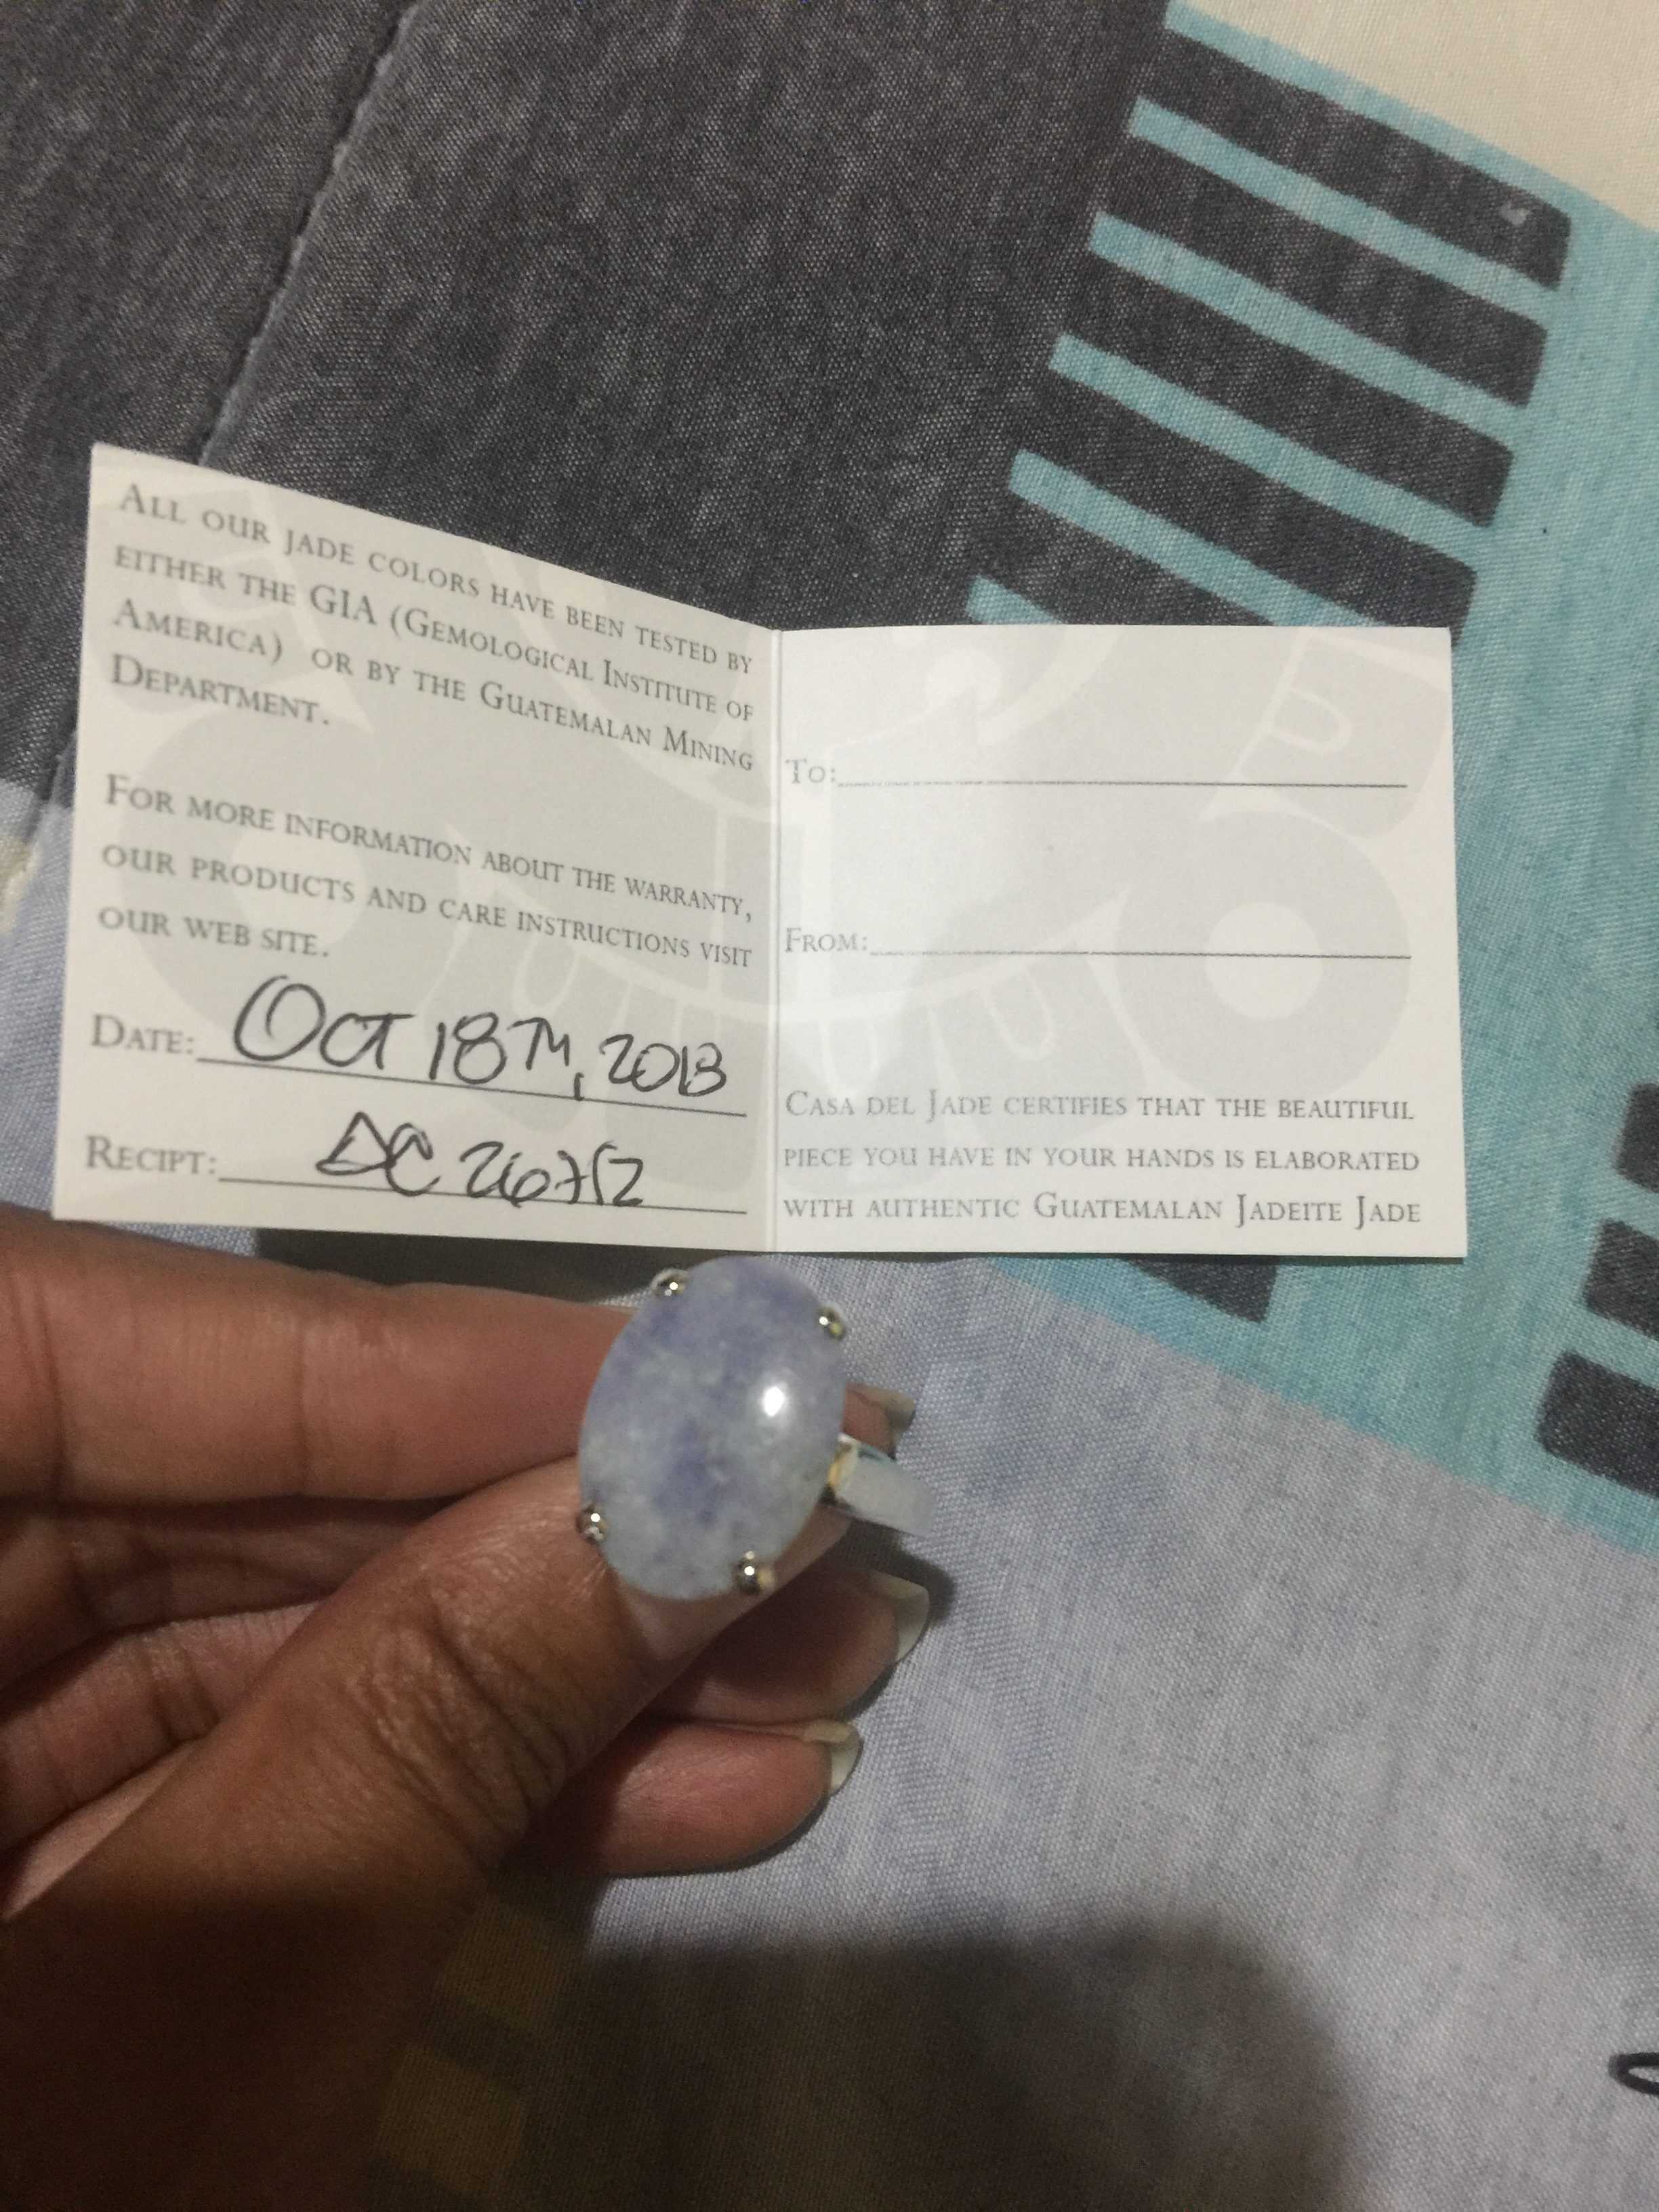 All our jade colors have been tested by
either the GIA (Gemological Institute of
America) or by the Guatemalan Mining
Department.
For more information about the warranty,
our products and care instructions visit
our web site.
Date: Oct 18th, 2013
Recipt:
To:
From:
Casa del Jade certifies that the beautiful
piece you have in your hands is elaborated
with authentic Guatemalan Jadeite Jade